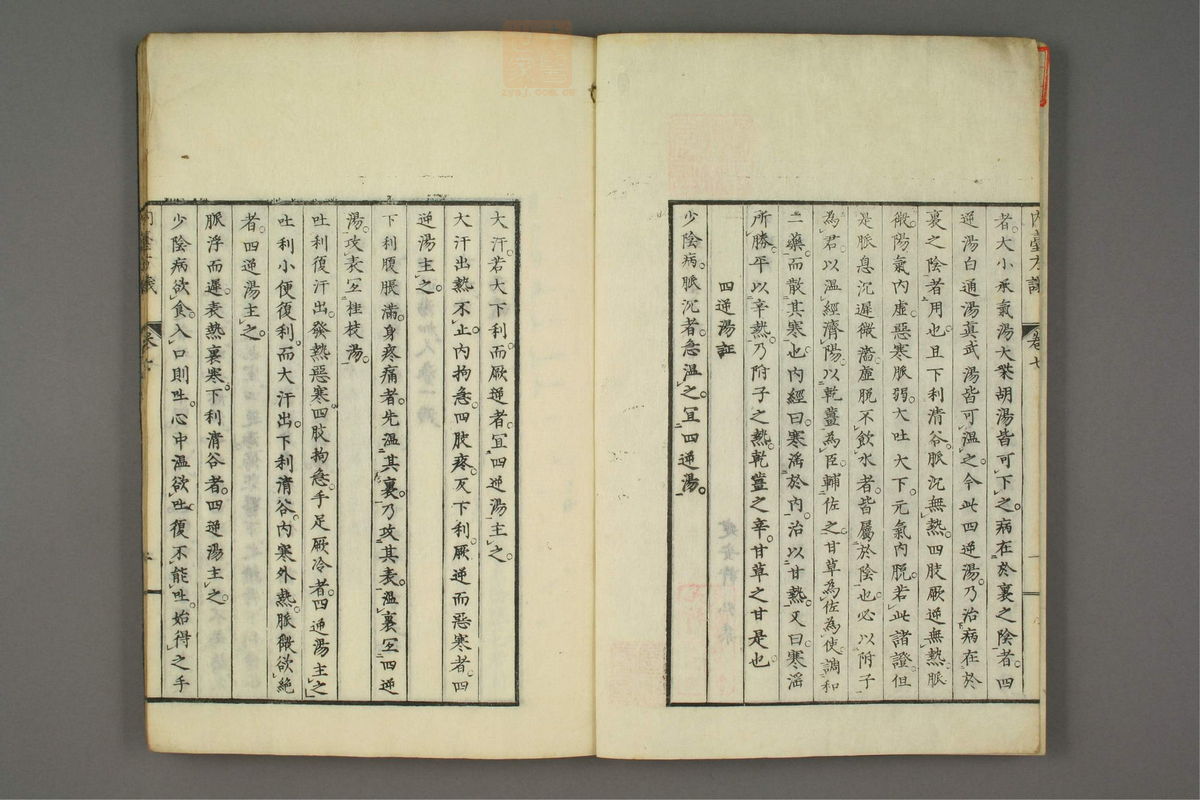 者大小承氣湯大柴胡湯皆可下之病在於裏之陰者四
逆湯白通湯真武湯皆可温之今此四逆湯乃治病在於
裏之陰者用也且下利清谷脈沉無熱四肢厥逆無熱脈
微陽氣內虛惡寒脈弱大吐大下元氣內脫若此諸證但
是脈息沉遲微濇虛脫不飲水者皆屬於陰也必以附子
為君以温經濟陽以乾薑為臣輔佐之甘草為佐為使調和
二藥而散其寒也內經曰寒滛於內治以甘熱又曰寒滛
所勝平以辛熱乃附子之熱乾薑之辛甘草之甘是也
四逆湯証
少陰病脈沉者急温之宜四逆湯
大汗若大下利而厥逆者宜四逆湯主之
大汗出熱不止內拘急四肢疼又下利厥逆而惡寒者四
逆湯主之
下利腹脹滿身疼痛者先温其裏乃攻其表温裏宜四逆
湯攻表宜桂枝湯
吐利復汗出發熱惡寒四肢拘急手足厥冷者四逆湯主之
吐利小便復利而大汗出下利清谷內寒外熱脈微欲絕
者四逆湯主之
脈浮而遲表熱裏寒下利清谷者四逆湯主之
少陰病欲食入口則吐心中温欲吐復不能吐始得之手